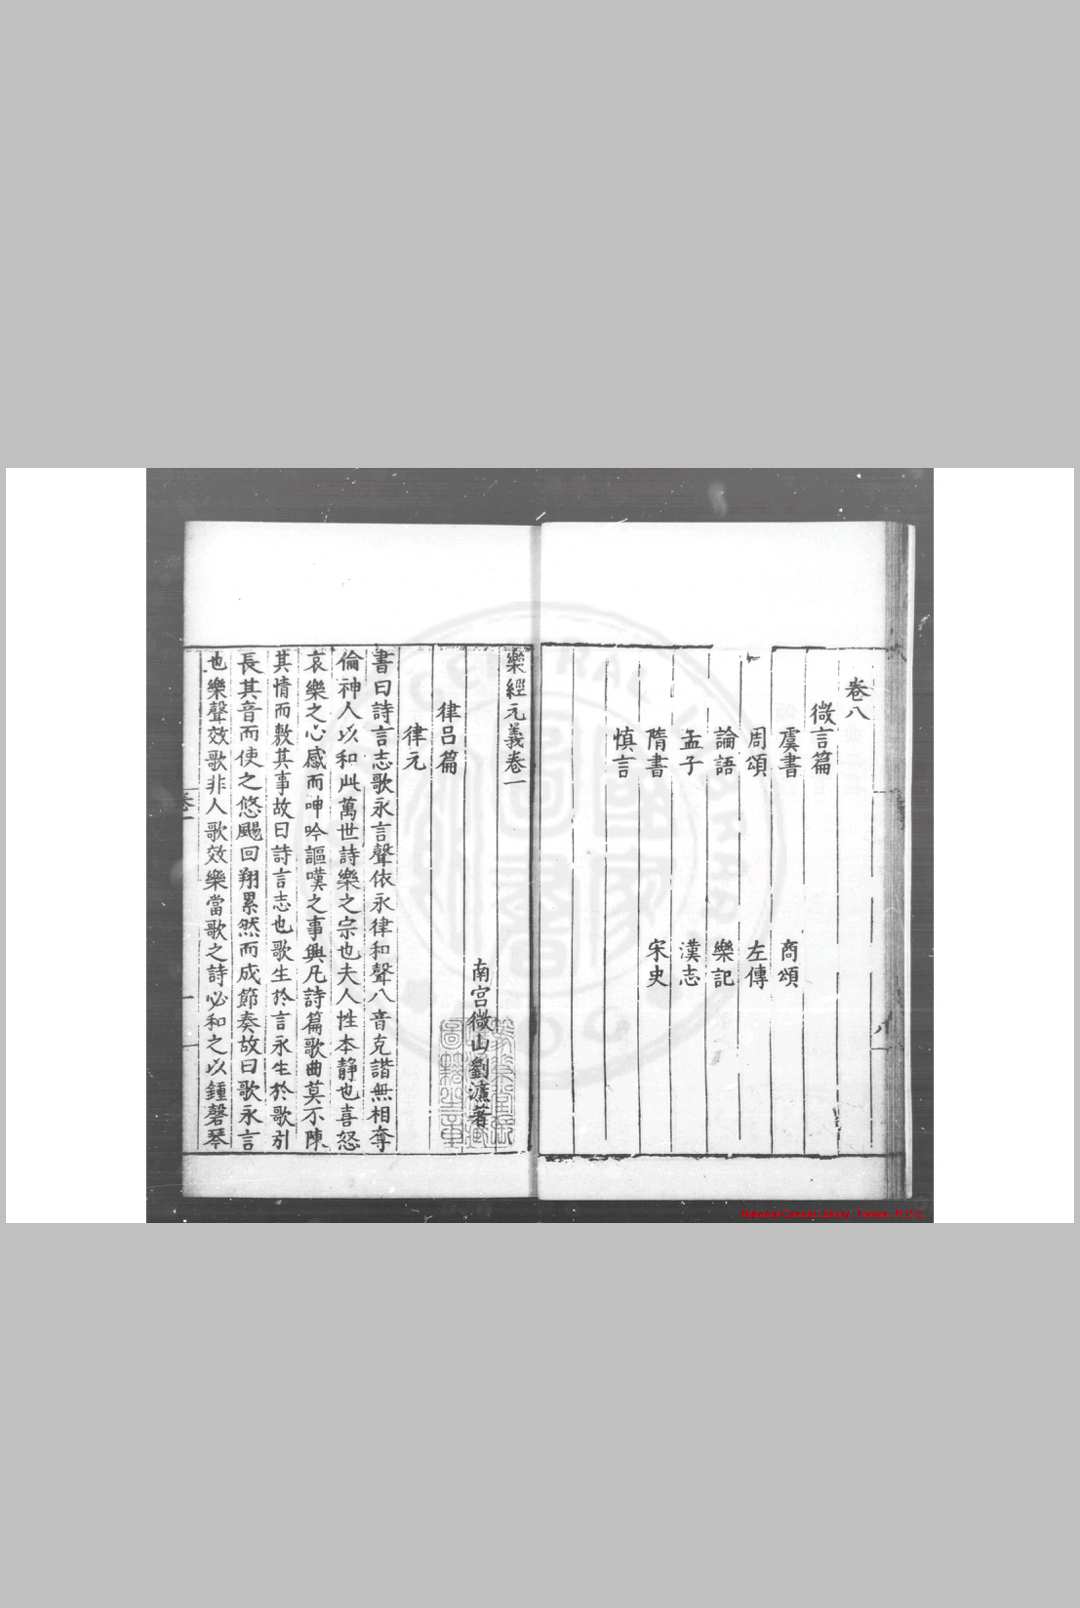 卷八
微言篇
虞書 商頌
周頌 左傳
論語 樂記
孟子 漢志
隋書 宋史
慎言
樂經元義卷一
南宮微山劉濂著
律呂篇
律元
書曰詩言志歌永言聲依永律和聲八音克諧無相奪
倫神人以和此萬世詩樂之宗也夫人性本靜也喜怒
哀樂之心感而呻吟謳嘆之事興凡詩篇歌曲莫不陳
其情而敷其事故曰詩言志也歌生於言永生於歌引
長其音而使之悠颺回翔累然而成節奏故曰歌永言
也樂聲效歌非人歌效樂當歌之詩必和之以鍾磬琴
卷一